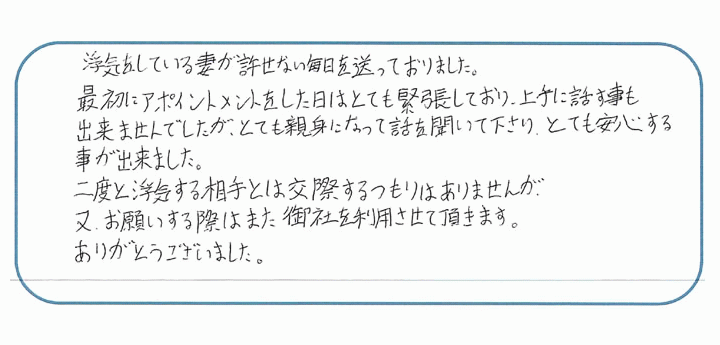 浮気をしている妻が許せない毎日を送っておりました。
最初にアポイントメントをした日はとても緊張しており、上手に話す事も
出来ませんでしたが、とても親身になって話を聞いて下さり、とても安心する
事が出来ました。
二度と浮気する相手とは交際するつもりはありませんが、
又、お願いする際はまた御社を利用させて頂きます。
ありがとうございました。